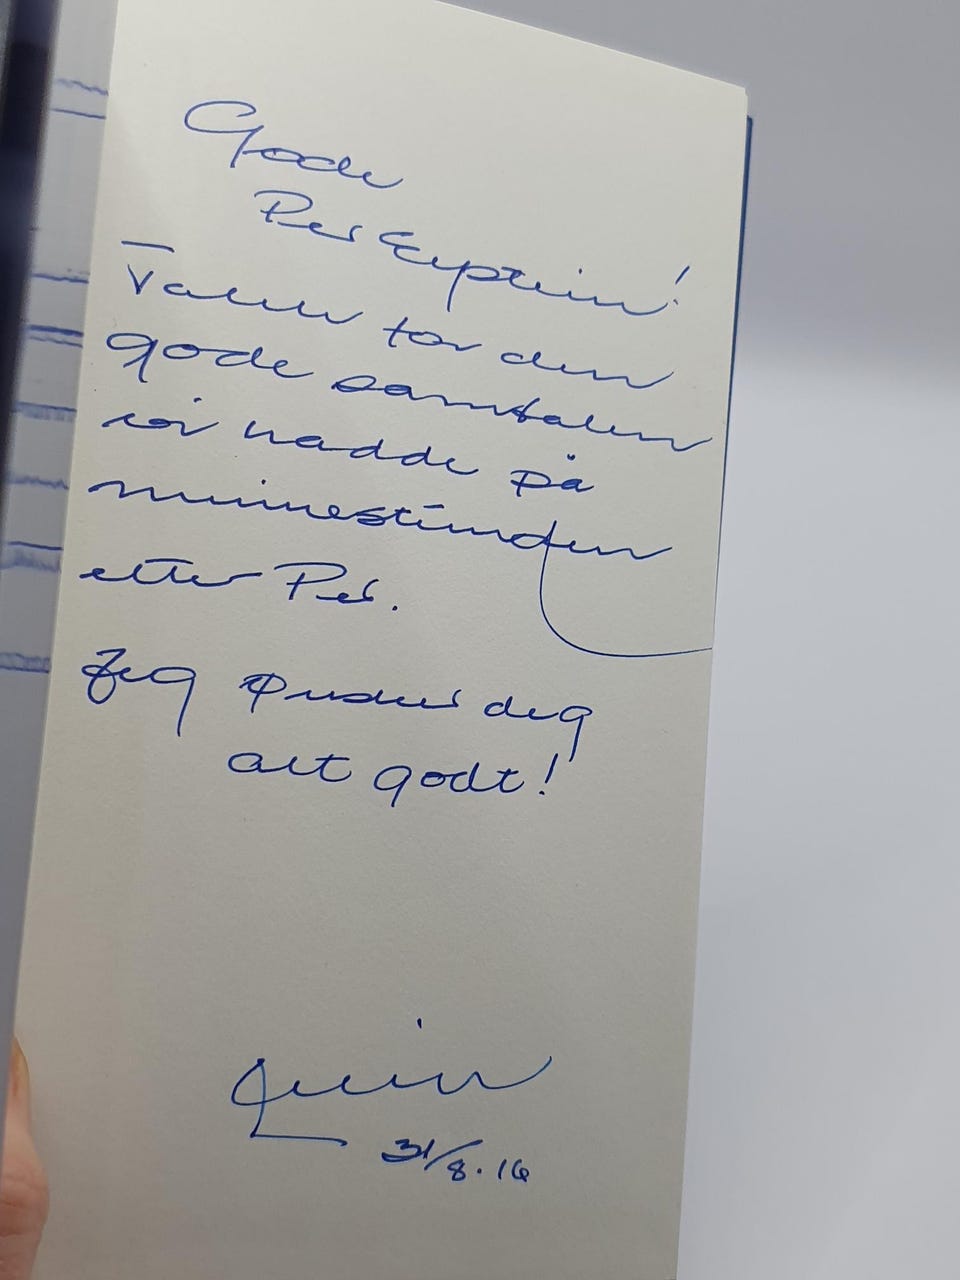 Gode
Per
Takk for den
gode samtalen
vi hadde på
minnestunden
etter Per.
Jeg ønsker deg
alt godt!
31/8.16